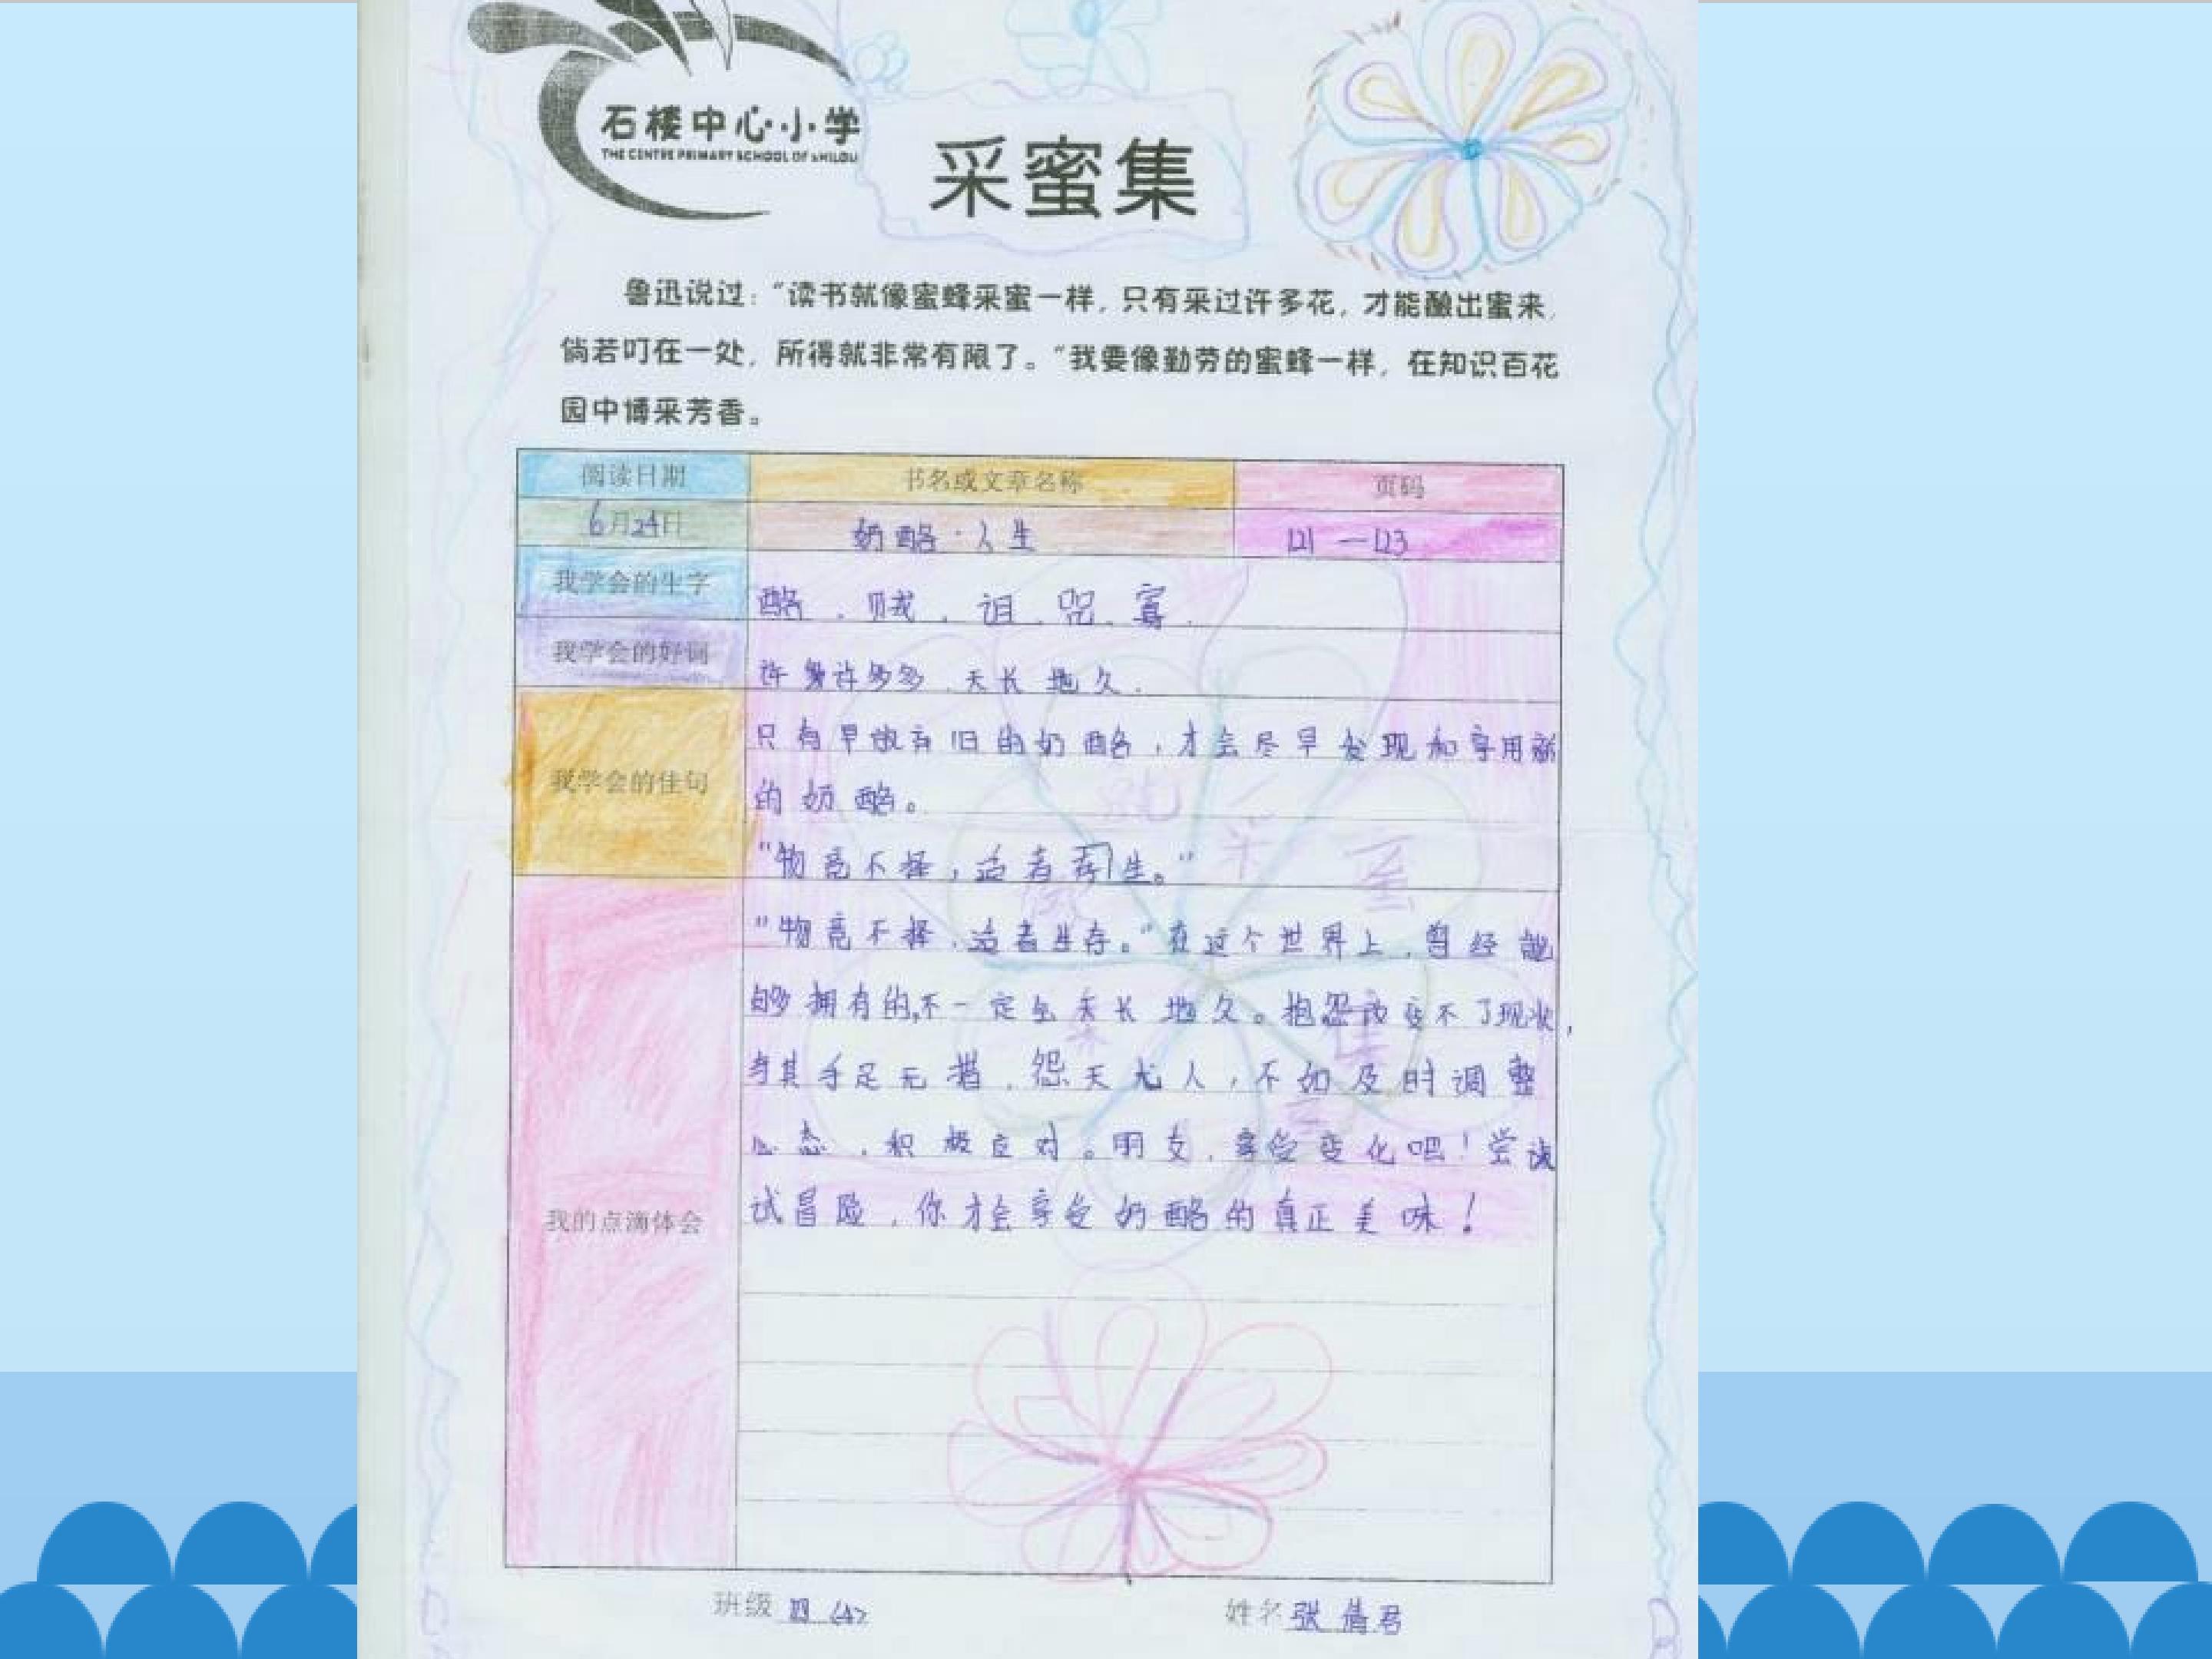 石楼中心小学
THE CENTRE PRIMARY SCHOOL OF SHILOU
采蜜集
鲁迅说过：“读书就像蜜蜂采蜜一样，只有采过许多花，才能酿出蜜来，
倘若叮在一处，所得就非常有限了。”我要像勤劳的蜜蜂一样，在知识百花
园中博采芳香。
阅读日期 书名或文章名称 页码
6月24日 奶酪·人生 121—123
我学会的生字 酪、贼、诅、咒、寓、
我学会的好词 许多许多多、天长地久、
我学会的佳句
只有早放弃旧的奶酪，才会尽早发现和享用新
的奶酪。
“物竞不择，适者存生。”
我的点滴体会
“物竞不择，适者生存。”在这个世界上，曾经能
够拥有的，不一定会天长地久。抱怨改变不了现状，
与其手足无措，怨天尤人，不如及时调整
心态，积极应对。朋友，享受变化吧！尝试
试冒险，你才会享受奶酪的真正美味！
班级 四(4)
姓名 张倩君